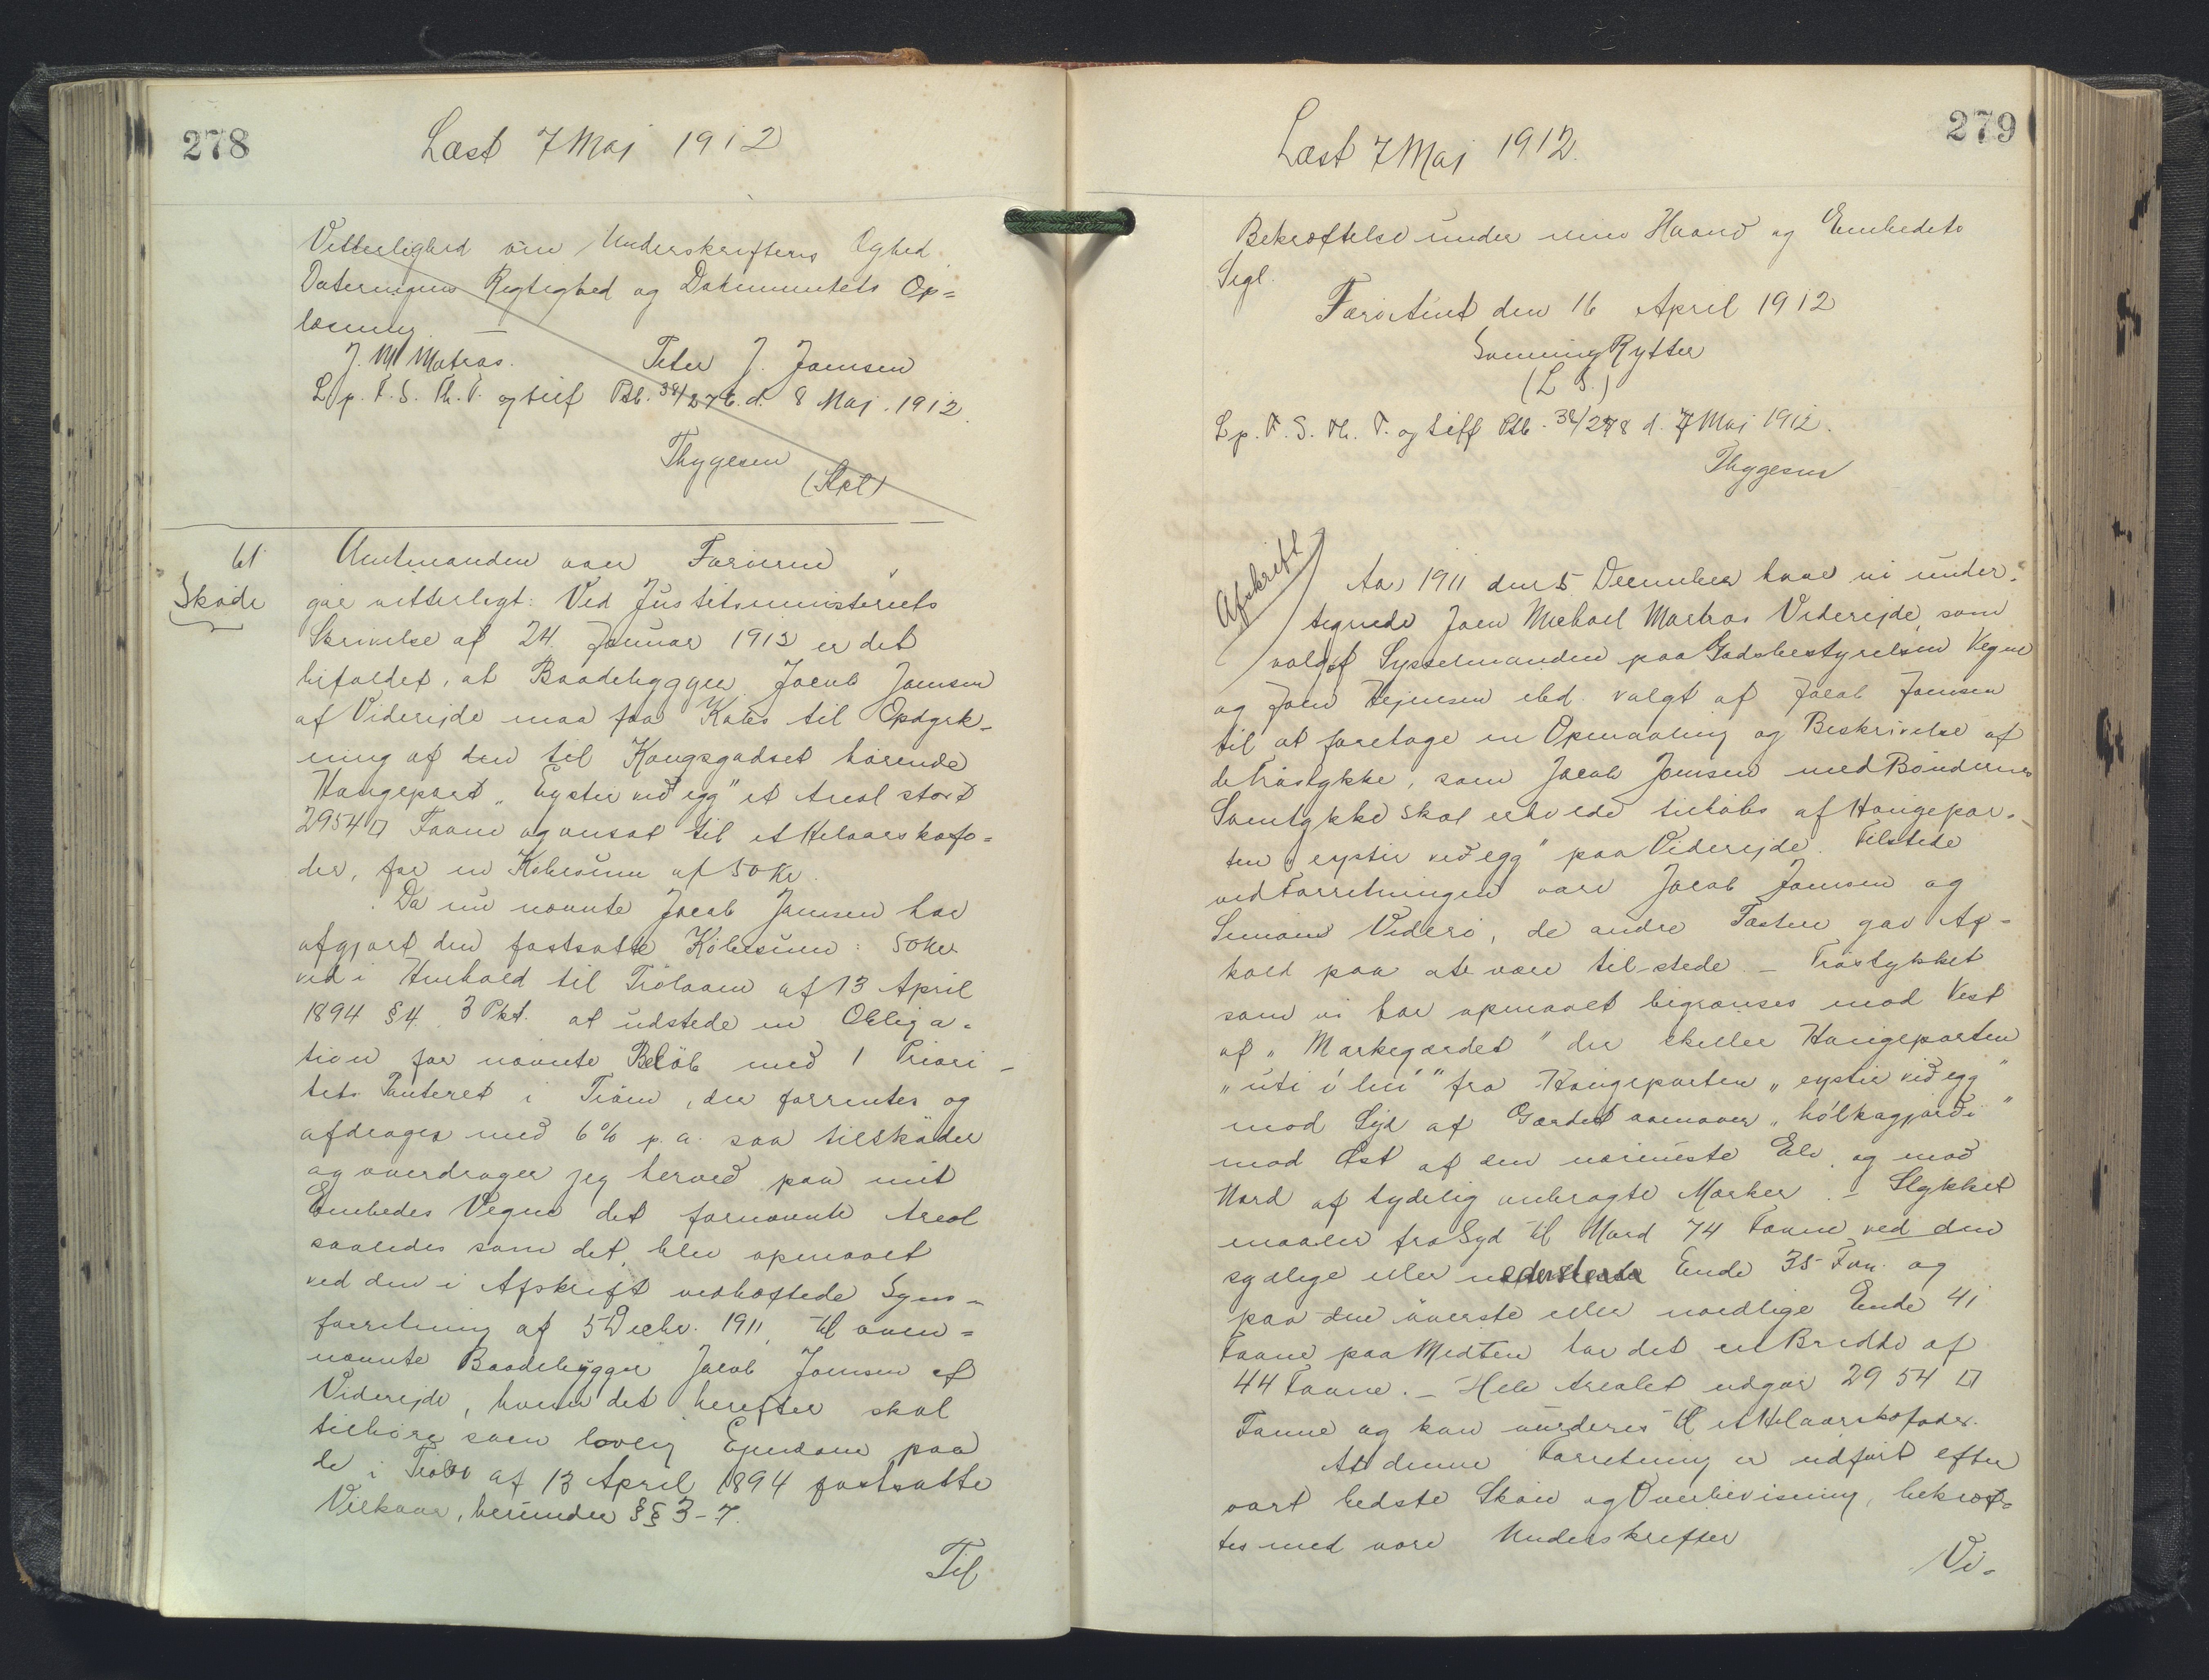 278
Læst 7 Maj 1912
Vitterlighed om Underskriftens Ægthed
Dateringens Rigtighed og Dokumentets Op=
læsning. —
J. M Matras. Peter J. Joensen
L p. F. S. Th. P. og tilf Ptb. 38/276. d. 8 Maj. 1912.
Thygesen
(Kst)
61
Skøde
Amtmanden over Færøerne
gør vitterligt: Ved Justitsministeriets
Skrivelse af 24. Januar 1912 er det
bifaldet, at Baadebygger Jacob Joensen
af Viderejde maa faa Købs til Opdyrk-
ning af den til Kongsgodset hørende
Haugepart „Eystir við egg" et Areal stort
2954 □ Favne og ansat til et Helaarskøfo=
der, for en Købesum af 50 Kr.
Da nu nævnte Jacob Joensen har
afgjort den fastsatte Købesum: 50 Kr
ved i Henhold til Trølaaen af 13 April
1894 §4 3 Pkt. at udstede en Obliga=
tion for nævnte Beløb med 1 Priori-
tets Panteret i Trøen, der forrentes og
afdrages med 6% p. a. saa tilskøder
og overdrager jeg herved paa mit
Embedes Vegne det fornævnte Areal
saaledes som det blev opmaalt
ved den i Afskrift vedhæftede Syns-
forretning af 5 Decbr. 1911, til oven=
nævnte Baadebygger Jacob Joensen af
Viderejde, hvem det herefter skal
tilhøre som lovlig Ejendom paa
de i Trølov af 13 April 1894 fastsatte
Vilkaar, herunder §§ 3-7.
Til
279
Læst 7 Maj 1912.
Bekræftelse under min Haand og Embedets
Segl.
Færø Amt den 16 April 1912
Svenning Rytter
(L S.)
L p. F. S. Th. P. og tilf Ptb. 38/278 d. 7 Maj 1912.
Thygesen
Afskrift
Aar 1911 den 5 December have vi under=
tegnede Joen Michael Matras Viderejde, som
valgt af Sysselmanden paa Godsbestyrelsen Vegne
og Joen Hejnesen ibd. valgt af Jacob Joensen
til at foretage en Opmaaling og Beskrivelse af
de Trøstykke, som Jacob Joensen med Bøndernes
Samtykke skal erholde tilkøbs af Haugepar-
ten „eystir við egg" paa Viderejde. Tilstede
ved Forretningen vare Jacob Joensen og
Simon Viderø, de andre Fæstere gav Af-
kald paa at være tilstede. — Trøstykket
som vi har opmaalt begrænses mod Vest
af „Markegærdet" der skeller Haugeparten
„úti í líð" fra Haugeparten „eystir við egg"
mod Syd af Gærdet ovenover „hólkagjørði"
mod Øst af den nærmeste Elv, og mod
Nord af tydelig anbragte Mærker. — Stykket
maaler fra Syd til Nord 74 Favne ved den
sydlige eller nederste Ende 35 Fvn. og
paa den øverste eller nordlige Ende 41
Favne paa Midten har det en Bredde af
44 Favne. — Hele Arealet udgør 2954 □
Favne og kan vurderes til et Helaarskøfoder.
At denne Forretning er udført efter
vort bedste Skøn og Overbevisning, bekræf=
tes med vore Underskrifter
Vi-